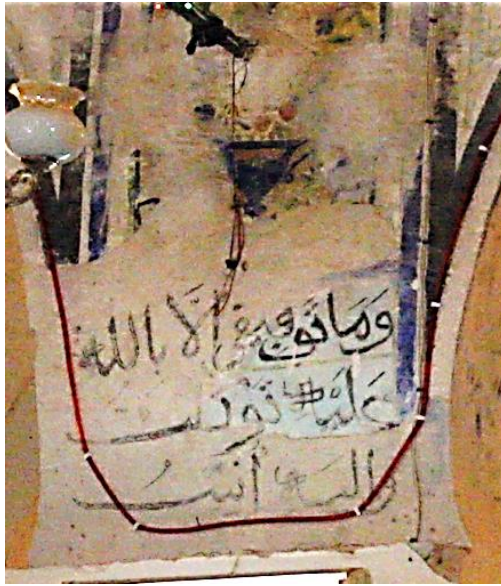 وَمَا تَوفيقي إلَّا بالله
عَلَيه تَوَكلت
واليه أنيبُ